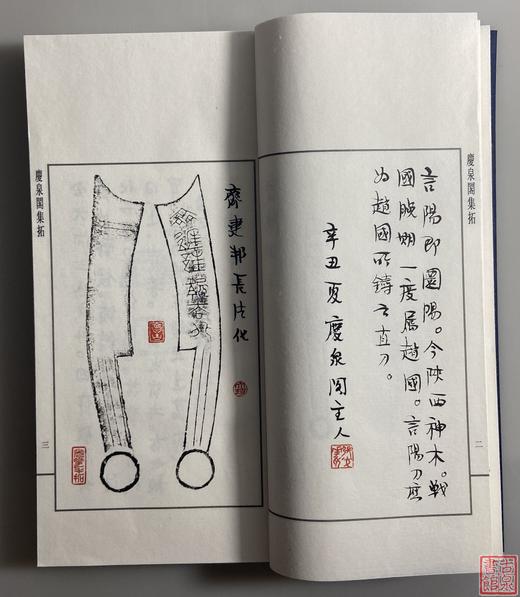 慶泉閣集拓
二
言陽即圁陽。今陝西神木。戰
國晚期一度屬趙國。言陽刀應
为趙國所鑄之直刀。
辛丑夏慶泉阁主人
齊建邦長法化
慶泉閣集拓
三